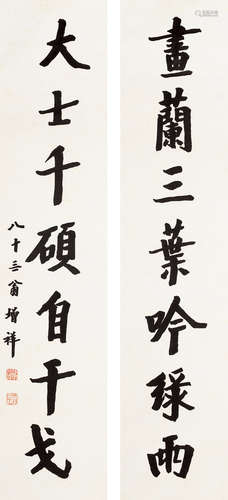 畫蘭三葉吟綠雨
大士千碩自干戈
八十三翁增祥